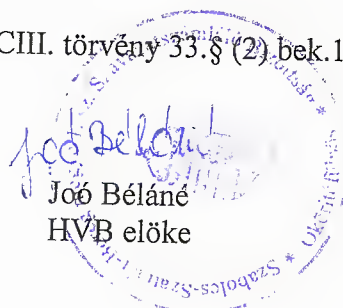 CIII. törvény 33.§ (2) bek.1
Joó Béláné
Joó Béláné
HVB elöke
Szabolcs-Szat